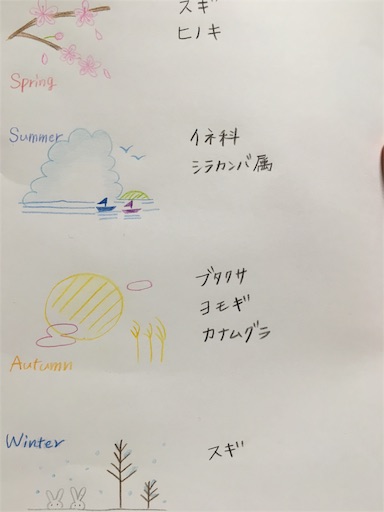 スギ
ヒノキ
Spring
Summer
イネ科
シラカンバ属
ブタクサ
ヨモギ
カナムグラ
Autumn
Winter
スギ